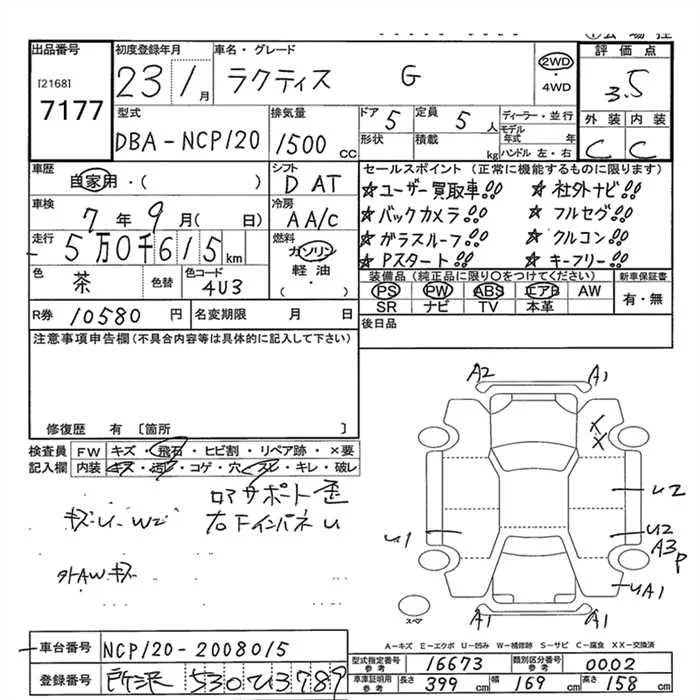 出品番号 初度登録年月 車名・グレード 評価点
[2168] 7177 23 1月 ラクティス G 2WD・4WD 3.5
型式 排気量 ドア 5 定員 5人 ディーラー・並行 外装 内装
DBA-NCP120 1500cc 形状 積載 kg モデル年式 年 C C
ハンドル 左・右
車歴 自家用・( ) シフト D AT セールスポイント(正常に機能するものに限ります)
☆ユーザー買取車!! ☆社外ナビ!!
車検 7年9月( 日) 冷房 AA/C ☆バックカメラ!! ☆フルセグ!!
走行 5万0千615km 燃料 ガソリン 軽油・( ) ☆ガラスルーフ!! ☆クルコン!!
☆Pスタート!! ☆キーフリー!!
色 茶 色替 色コード 4U3 装備品(純正品に限り○をつけてください) 新車保証書
PS PW ABS エアB AW 有・無
SR ナビ TV 本革
R券 10580円 名変期限 月 日 後日品
注意事項申告欄(不具合内容等は具体的に記入して下さい)
修復歴 有[箇所 ]
検査員 FW キズ・飛石・ヒビ割・リペア跡・×要
記入欄 内装 キズ・汚レ・コゲ・穴・スレ・キレ・破レ
ロアサポート歪
キズ・U・W2 右下インパネU
外AWキズ
A2 A1
X
X
U2
U1 U2
A3 P
UA1
スペア A1 A1
A-キズ E-エクボ U-凹み W-補修跡 S-サビ C-腐食 XX-交換済
車台番号 NCP120-2008015
登録番号 所沢 530 ひ 3789
型式指定番号 参考 16673 類別区分番号 参考 0002
車庫証明用 参考 長さ 399cm 幅 169cm 高さ 158cm